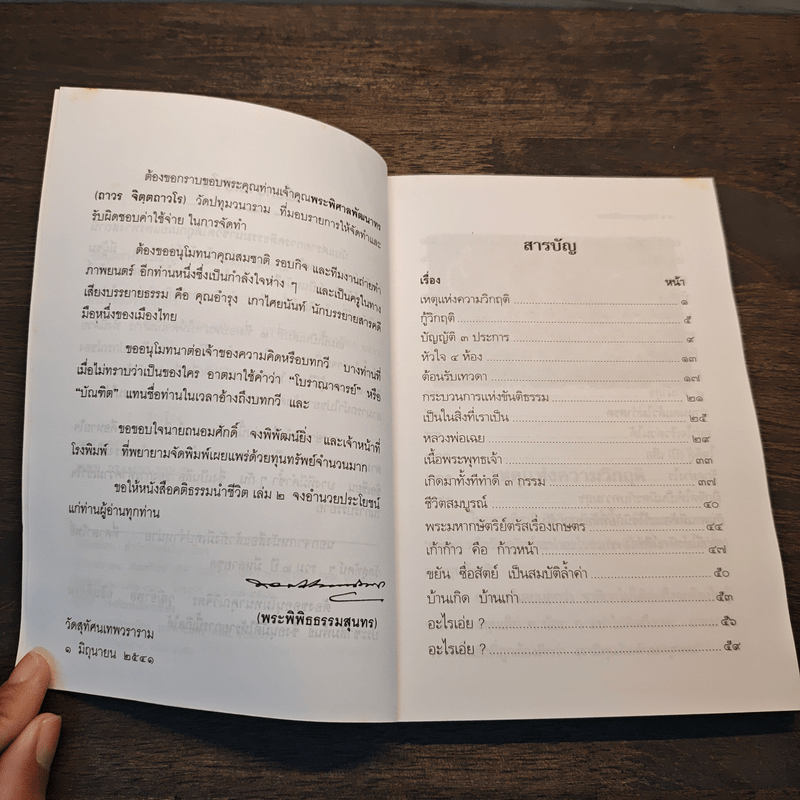 ต้องขอกราบขอบพระคุณท่านเจ้าคุณพระพิศาลพัฒนาทร
(ถาวร จิตฺตถาวโร) วัดปทุมวนาราม ที่มอบรายการให้จัดทำและ
รับผิดชอบค่าใช้จ่าย ในการจัดทำ
ต้องขออนุโมทนาคุณสมชาติ รอบกิจ และทีมงานถ่ายทำ
ภาพยนตร์ อีกท่านหนึ่งซึ่งเป็นกำลังใจห่าง ๆ และเป็นครูในทาง
เสียงบรรยายธรรม คือ คุณอำรุง เกาไศยนันท์ นักบรรยายสารคดี
มือหนึ่งของเมืองไทย
ขออนุโมทนาต่อเจ้าของความคิดหรือบทกวี บางท่านที่
เมื่อไม่ทราบว่าเป็นของใคร อาตมาใช้คำว่า “โบราณาจารย์” หรือ
“บัณฑิต” แทนชื่อท่านในเวลาอ้างถึงบทกวี และ
ขอขอบใจนายถนอมศักดิ์ จงพิพัฒน์ยิ่ง และเจ้าหน้าที่
โรงพิมพ์ ที่พยายามจัดพิมพ์เผยแพร่ด้วยทุนทรัพย์จำนวนมาก
ขอให้หนังสือคติธรรมนำชีวิต เล่ม ๒ จงอำนวยประโยชน์
แก่ท่านผู้อ่านทุกท่าน
(พระพิพิธธรรมสุนทร)
วัดสุทัศนเทพวราราม
๑ มิถุนายน ๒๕๔๑
สารบัญ
เรื่อง หน้า
เหตุแห่งความวิกฤติ ๑
กู้วิกฤติ ๕
บัญญัติ ๓ ประการ ๙
หัวใจ ๔ ห้อง ๑๓
ต้อนรับเทวดา ๑๗
กระบวนการแห่งขันติธรรม ๒๑
เป็นในสิ่งที่เราเป็น ๒๕
หลวงพ่อเฉย ๒๙
เนื้อพระพุทธเจ้า ๓๓
เกิดมาทั้งทีทำดี ๓ กรรม ๓๗
ชีวิตสมบูรณ์ ๔๐
พระมหากษัตริย์ตรัสเรื่องเกษตร ๔๔
เก้าก้าว คือ ก้าวหน้า ๔๗
ขยัน ซื่อสัตย์ เป็นสมบัติล้ำค่า ๕๐
บ้านเกิด บ้านเก่า ๕๓
อะไรเอ่ย ? ๕๖
อะไรเอ่ย ? ๕๙